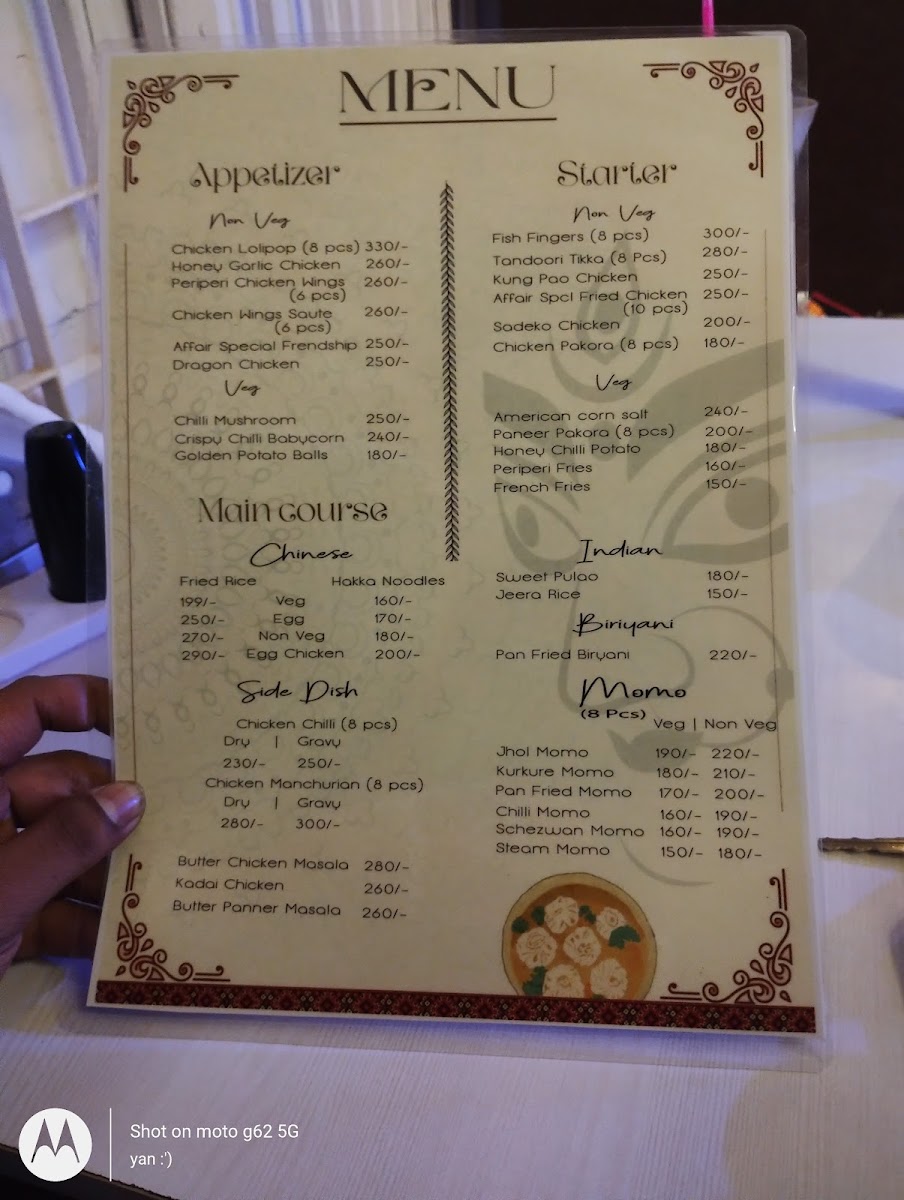 MENU
Appetizer
Non Veg
Chicken Lolipop (8 pcs) 330/-
Honey Garlic Chicken 260/-
Periperi Chicken Wings 260/-
(6 pcs)
Chicken Wings Saute 260/-
(6 pcs)
Affair Special Frendship 250/-
Dragon Chicken 250/-
Veg
Chilli Mushroom 250/-
Crispy Chilli Babycorn 240/-
Golden Potato Balls 180/-
Starter
Non Veg
Fish Fingers (8 pcs) 300/-
Tandoori Tikka (8 Pcs) 280/-
Kung Pao Chicken 250/-
Affair Spcl Fried Chicken 250/-
(10 pcs)
Sadeko Chicken 200/-
Chicken Pakora (8 pcs) 180/-
Veg
American corn salt 240/-
Paneer Pakora (8 pcs) 200/-
Honey Chilli Potato 180/-
Periperi Fries 160/-
French Fries 150/-
Main course
Chinese
Fried Rice Hakka Noodles
199/- Veg 160/-
250/- Egg 170/-
270/- Non Veg 180/-
290/- Egg Chicken 200/-
Side Dish
Chicken Chilli (8 pcs)
Dry | Gravy
230/- 250/-
Chicken Manchurian (8 pcs)
Dry | Gravy
280/- 300/-
Butter Chicken Masala 280/-
Kadai Chicken 260/-
Butter Panner Masala 260/-
Indian
Sweet Pulao 180/-
Jeera Rice 150/-
Biriyani
Pan Fried Biryani 220/-
Momo
(8 Pcs) Veg | Non Veg
Jhol Momo 190/- 220/-
Kurkure Momo 180/- 210/-
Pan Fried Momo 170/- 200/-
Chilli Momo 160/- 190/-
Schezwan Momo 160/- 190/-
Steam Momo 150/- 180/-
Shot on moto g62 5G
yan :')